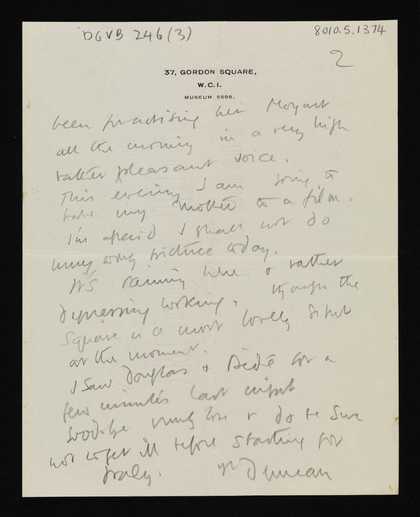 DGVB 246(3)
8010.5.1374
2
37, GORDON SQUARE,
W.C.1.
MUSEUM 5508.
been practising her Mozart
all the morning in a very high
rather pleasant voice.
This evening I am going to
take my mother to a film.
I'm afraid I shall not do
any picture today.
It's raining here & rather
depressing looking, though the
Square is a most lovely sight
at the moment.
I saw Douglas & for a
few minutes last night
Goodbye & do be sure
not to get ill before starting for
Italy.
Yr Duncan